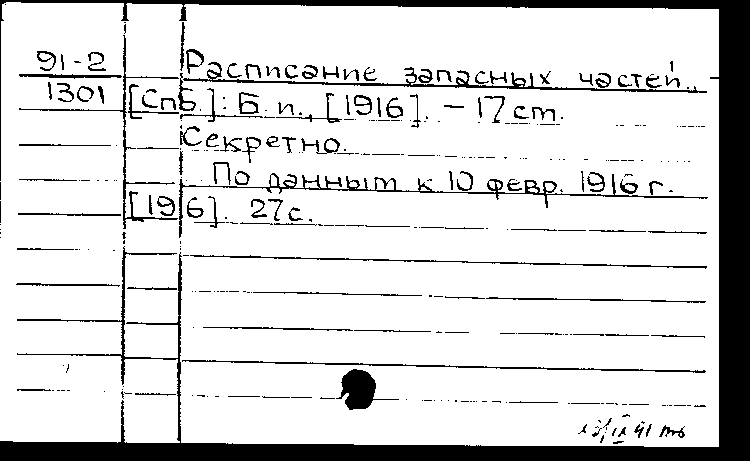 91-2 Расписание запасных частей...
1301 [СпБ.]: Б. и., [1916]. – 17 ст.
Секретно.
По данным к 10 февр. 1916 г.
[19 6]. 27 с.